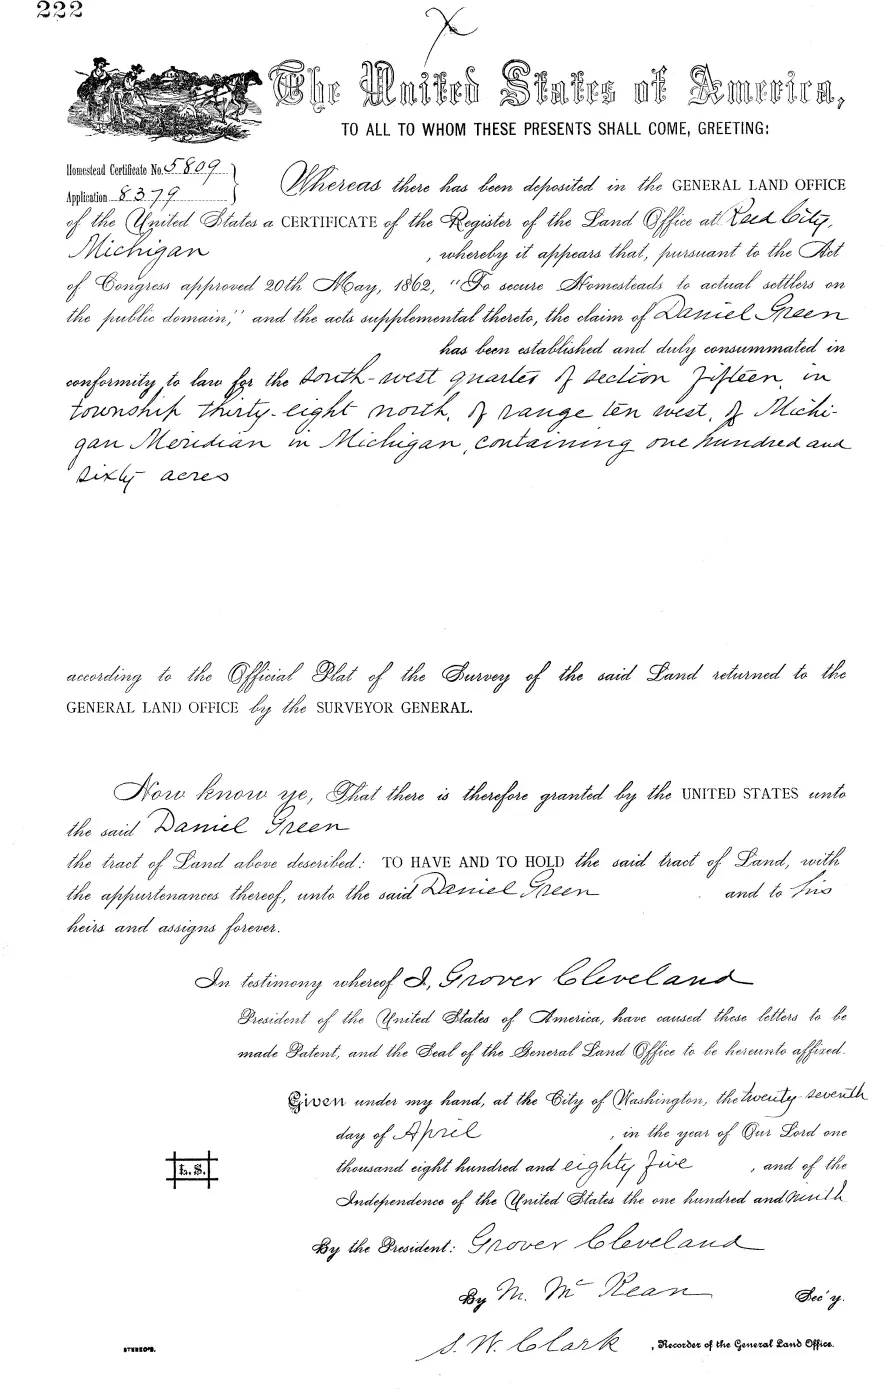 222
The United States of America,
TO ALL TO WHOM THESE PRESENTS SHALL COME, GREETING:
Homestead Certificate No. 5809
Application 8379
Whereas there has been deposited in the GENERAL LAND OFFICE
of the United States a CERTIFICATE of the Register of the Land Office at Reed City,
Michigan, whereby it appears that, pursuant to the Act
of Congress approved 20th May, 1862, "To secure Homesteads to actual settlers on
the public domain," and the acts supplemental thereto, the claim of Daniel Green
has been established and duly consummated in
conformity to law for the south-west quarter of section fifteen, in
township thirty-eight north, of range ten west, of Michi-
gan Meridian in Michigan, containing one hundred and
sixty acres
according to the Official Plat of the Survey of the said Land returned to the
GENERAL LAND OFFICE by the SURVEYOR GENERAL.
Now know ye, That there is therefore granted by the UNITED STATES unto
the said Daniel Green
the tract of Land above described: TO HAVE AND TO HOLD the said tract of Land, with
the appurtenances thereof, unto the said Daniel Green and to his
heirs and assigns forever.
In testimony whereof I, Grover Cleveland
President of the United States of America, have caused these letters to be
made Patent, and the Seal of the General Land Office to be hereunto affixed.
Given under my hand, at the City of Washington, the twenty seventh
day of April, in the year of Our Lord one
thousand eight hundred and eighty five, and of the
L.S.
Independence of the United States the one hundred and ninth
By the President: Grover Cleveland
By M. McKean Sec'y.
S. W. Clark, Recorder of the General Land Office.
STEREO'D.